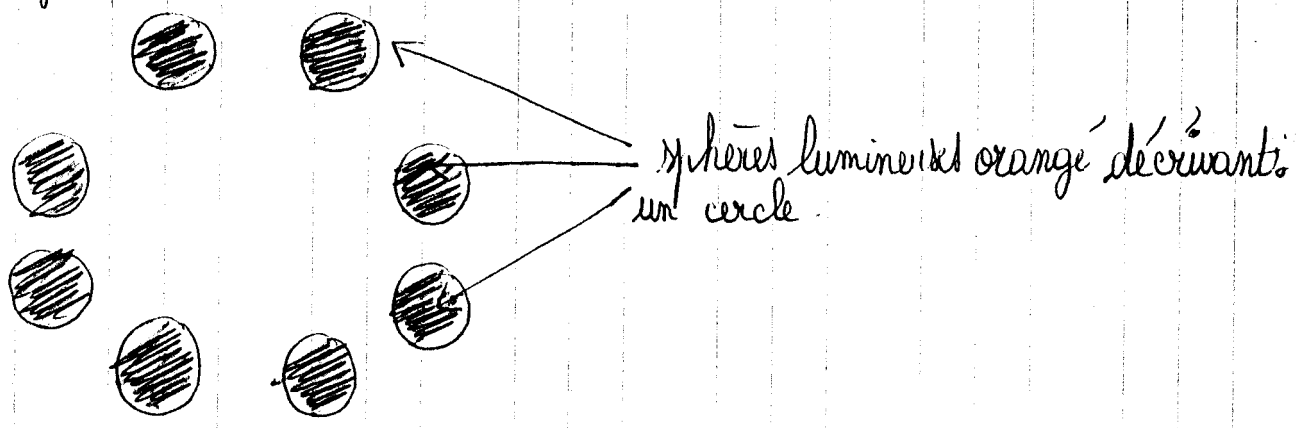 sphères lumineuses orangé décrivant
un cercle.